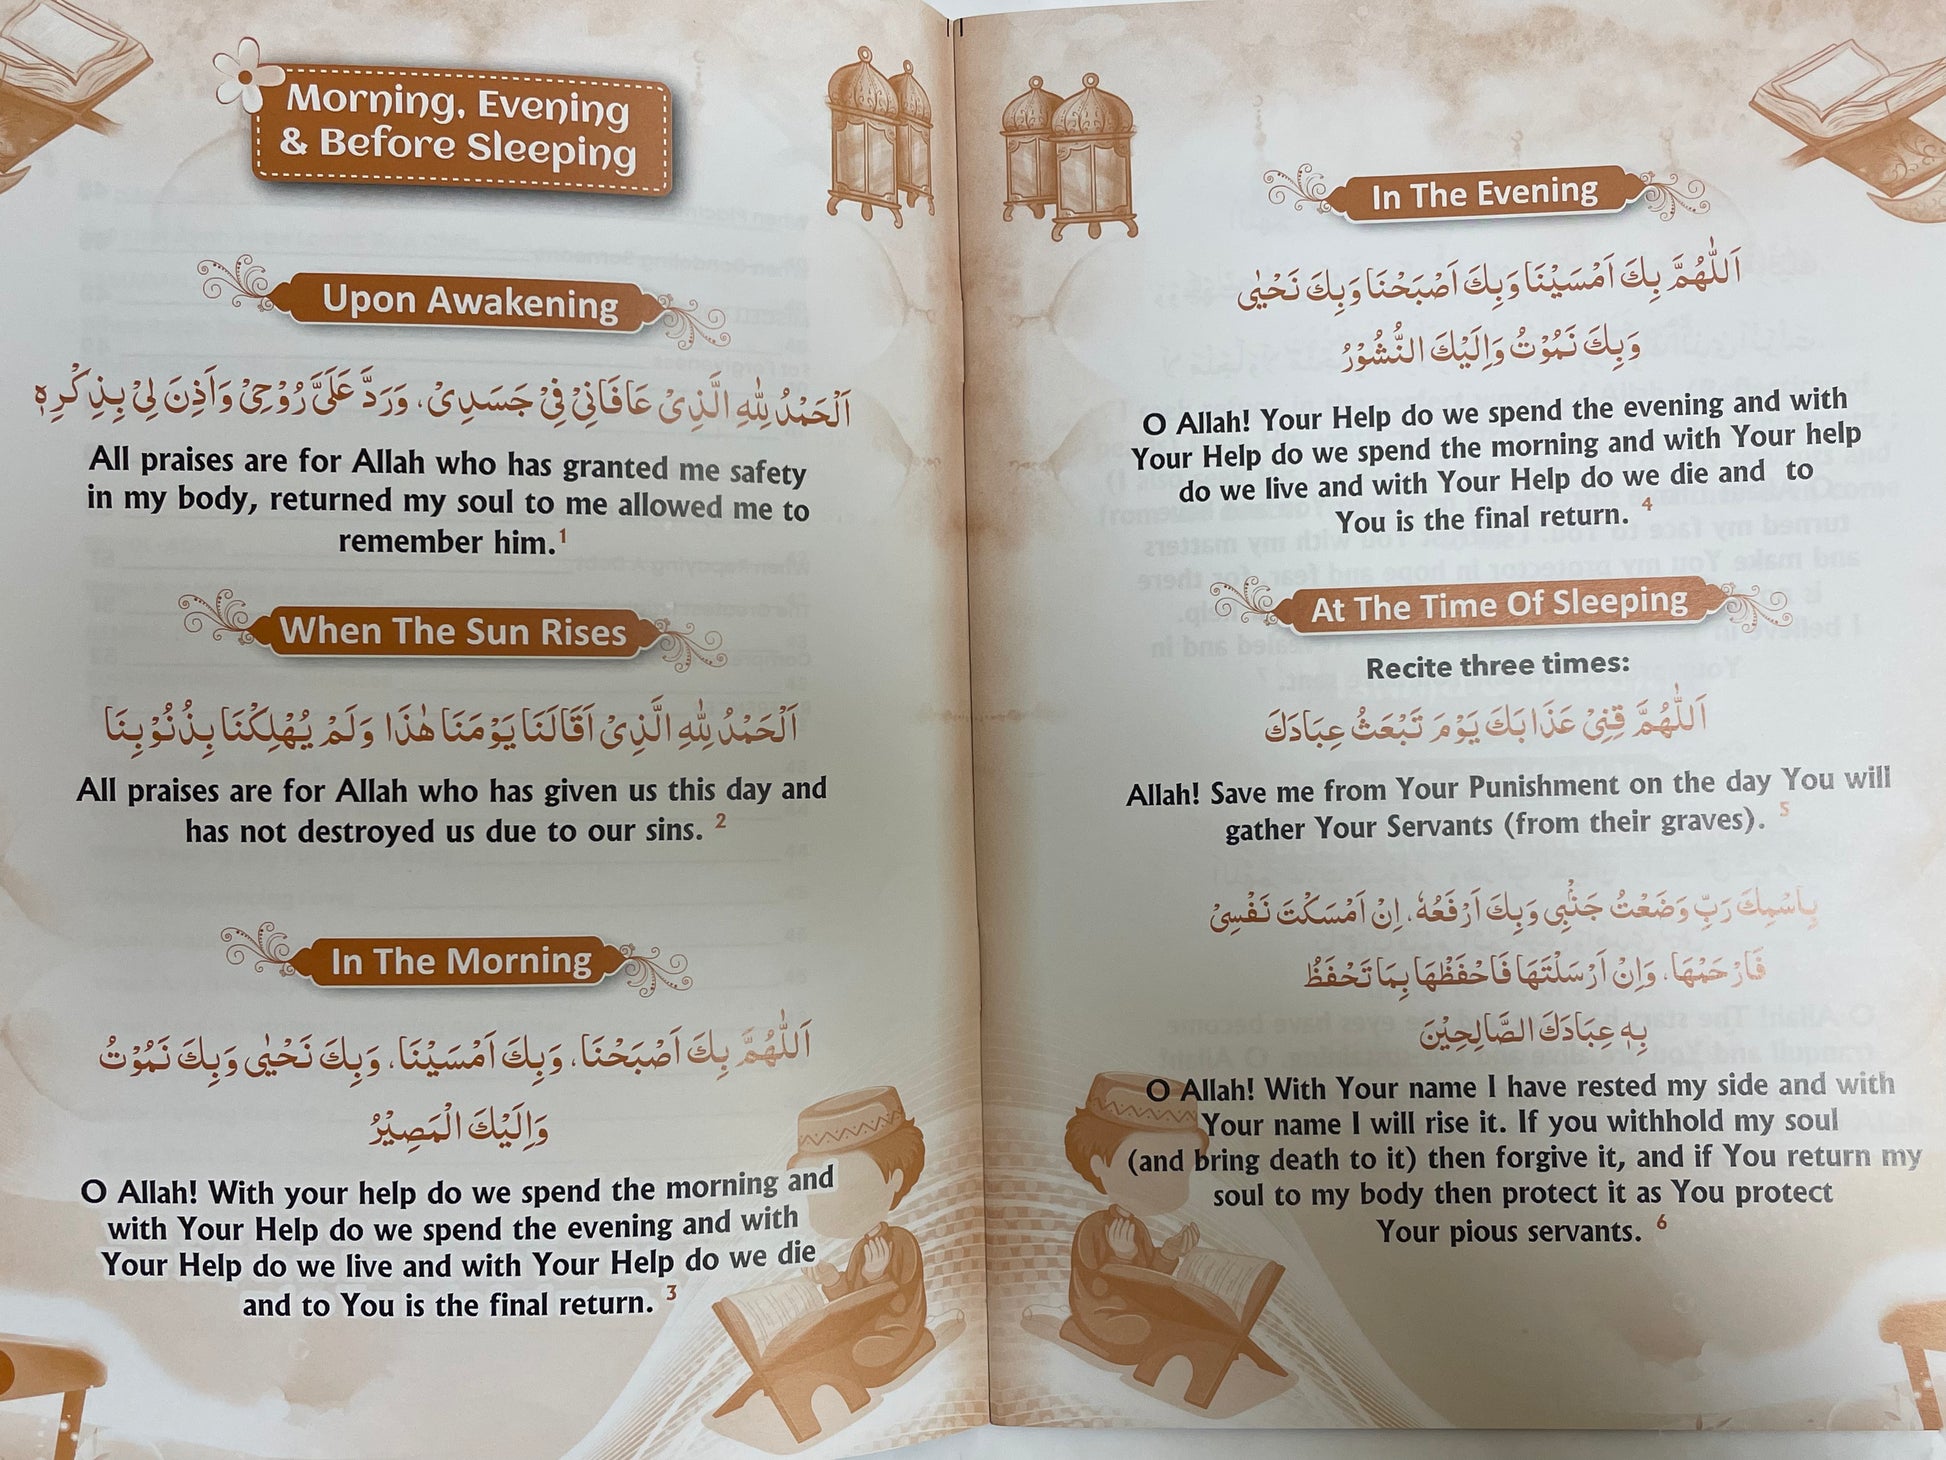 Morning, Evening
& Before Sleeping
Upon Awakening
اَلْحَمْدُ لِلّٰهِ الَّذِىْ عَافَانِىْ فِىْ جَسَدِىْ، وَرَدَّ عَلَىَّ رُوْحِىْ وَاَذِنَ لِىْ بِذِكْرِهٖ
All praises are for Allah who has granted me safety
in my body, returned my soul to me allowed me to
remember him.1
When The Sun Rises
اَلْحَمْدُ لِلّٰهِ الَّذِىْ اَقَالَنَا يَوْمَنَا هٰذَا وَلَمْ يُهْلِكْنَا بِذُنُوْبِنَا
All praises are for Allah who has given us this day and
has not destroyed us due to our sins. 2
In The Morning
اَللّٰهُمَّ بِكَ اَصْبَحْنَا، وَبِكَ اَمْسَيْنَا، وَبِكَ نَحْيٰى وَبِكَ نَمُوْتُ
وَاِلَيْكَ الْمَصِيْرُ
O Allah! With your help do we spend the morning and
with Your Help do we spend the evening and with
Your Help do we live and with Your Help do we die
and to You is the final return. 3
In The Evening
اَللّٰهُمَّ بِكَ اَمْسَيْنَا وَبِكَ اَصْبَحْنَا وَبِكَ نَحْيٰى
وَبِكَ نَمُوْتُ وَاِلَيْكَ النُّشُوْرُ
O Allah! Your Help do we spend the evening and with
Your Help do we spend the morning and with Your help
do we live and with Your Help do we die and to
You is the final return. 4
At The Time Of Sleeping
Recite three times:
اَللّٰهُمَّ قِنِىْ عَذَابَكَ يَوْمَ تَبْعَثُ عِبَادَكَ
Allah! Save me from Your Punishment on the day You will
gather Your Servants (from their graves). 5
بِاسْمِكَ رَبِّ وَضَعْتُ جَنْۢبِى وَبِكَ اَرْفَعُهٗ، اِنْ اَمْسَكْتَ نَفْسِىْ
فَارْحَمْهَا، وَاِنْ اَرْسَلْتَهَا فَاحْفَظْهَا بِمَا تَحْفَظُ
بِهٖ عِبَادَكَ الصَّالِحِيْنَ
O Allah! With Your name I have rested my side and with
Your name I will rise it. If you withhold my soul
(and bring death to it) then forgive it, and if You return my
soul to my body then protect it as You protect
Your pious servants. 6